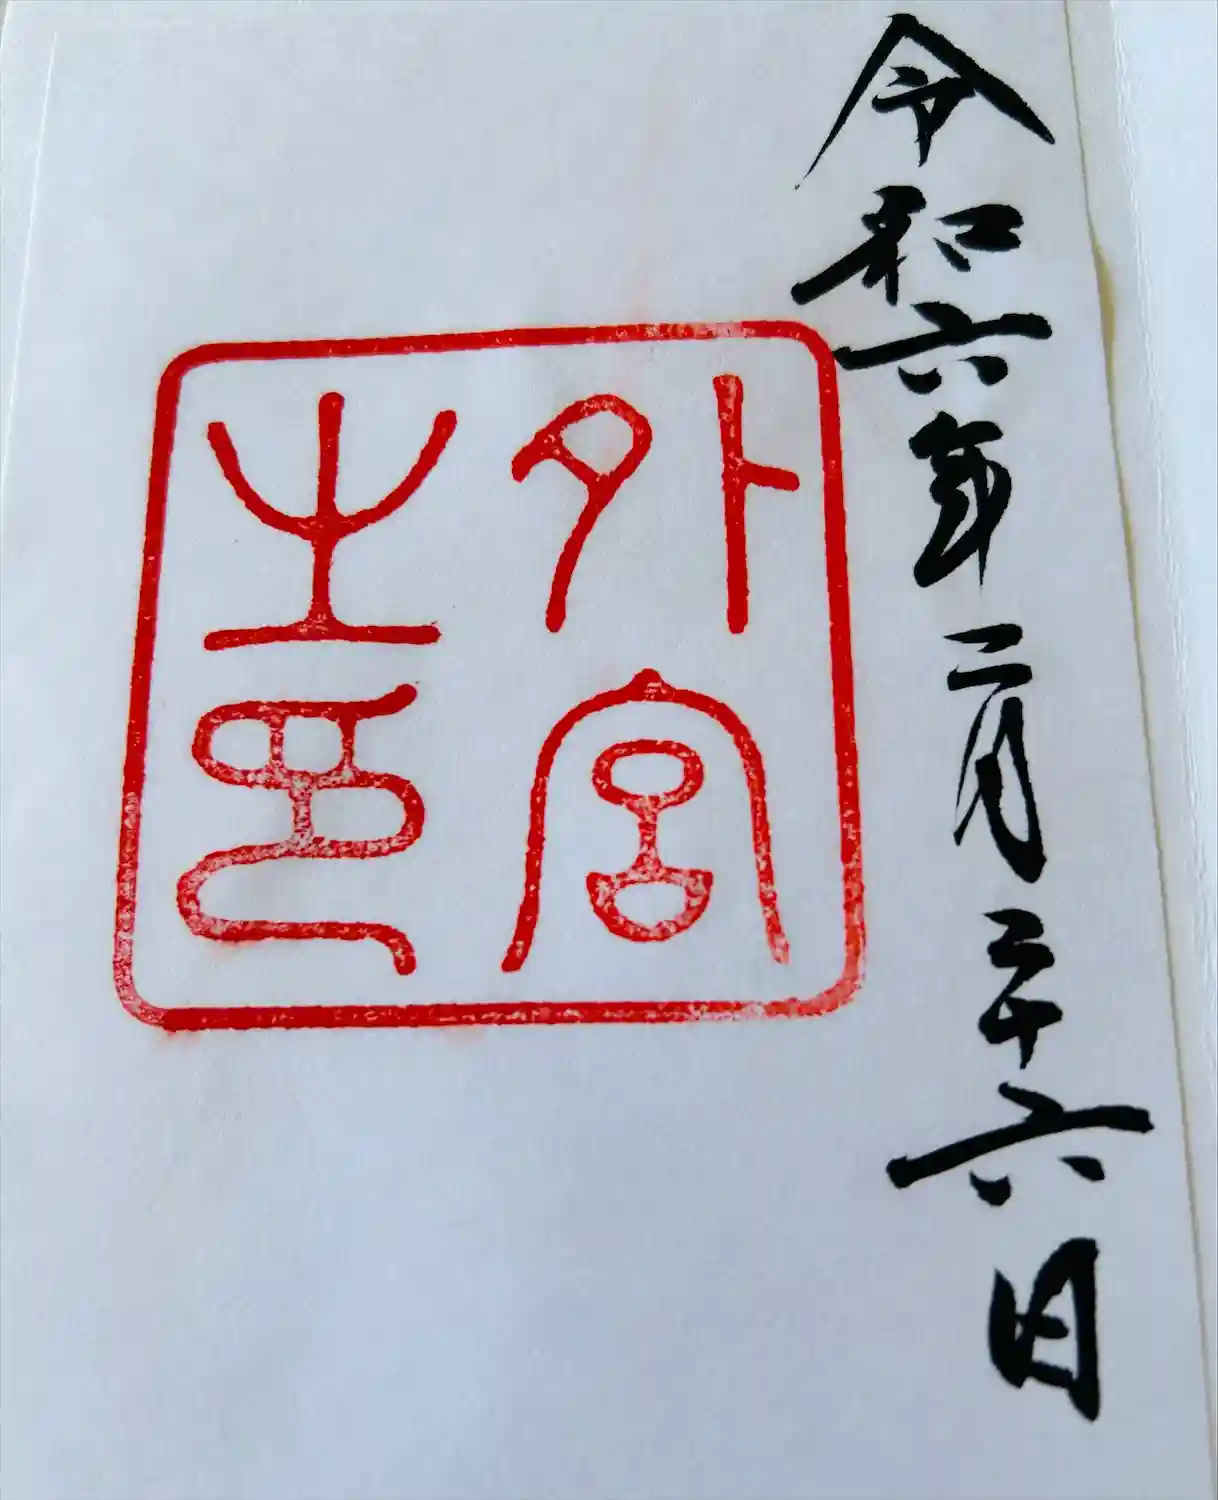 令和六年二月二十六日
外宮
之印